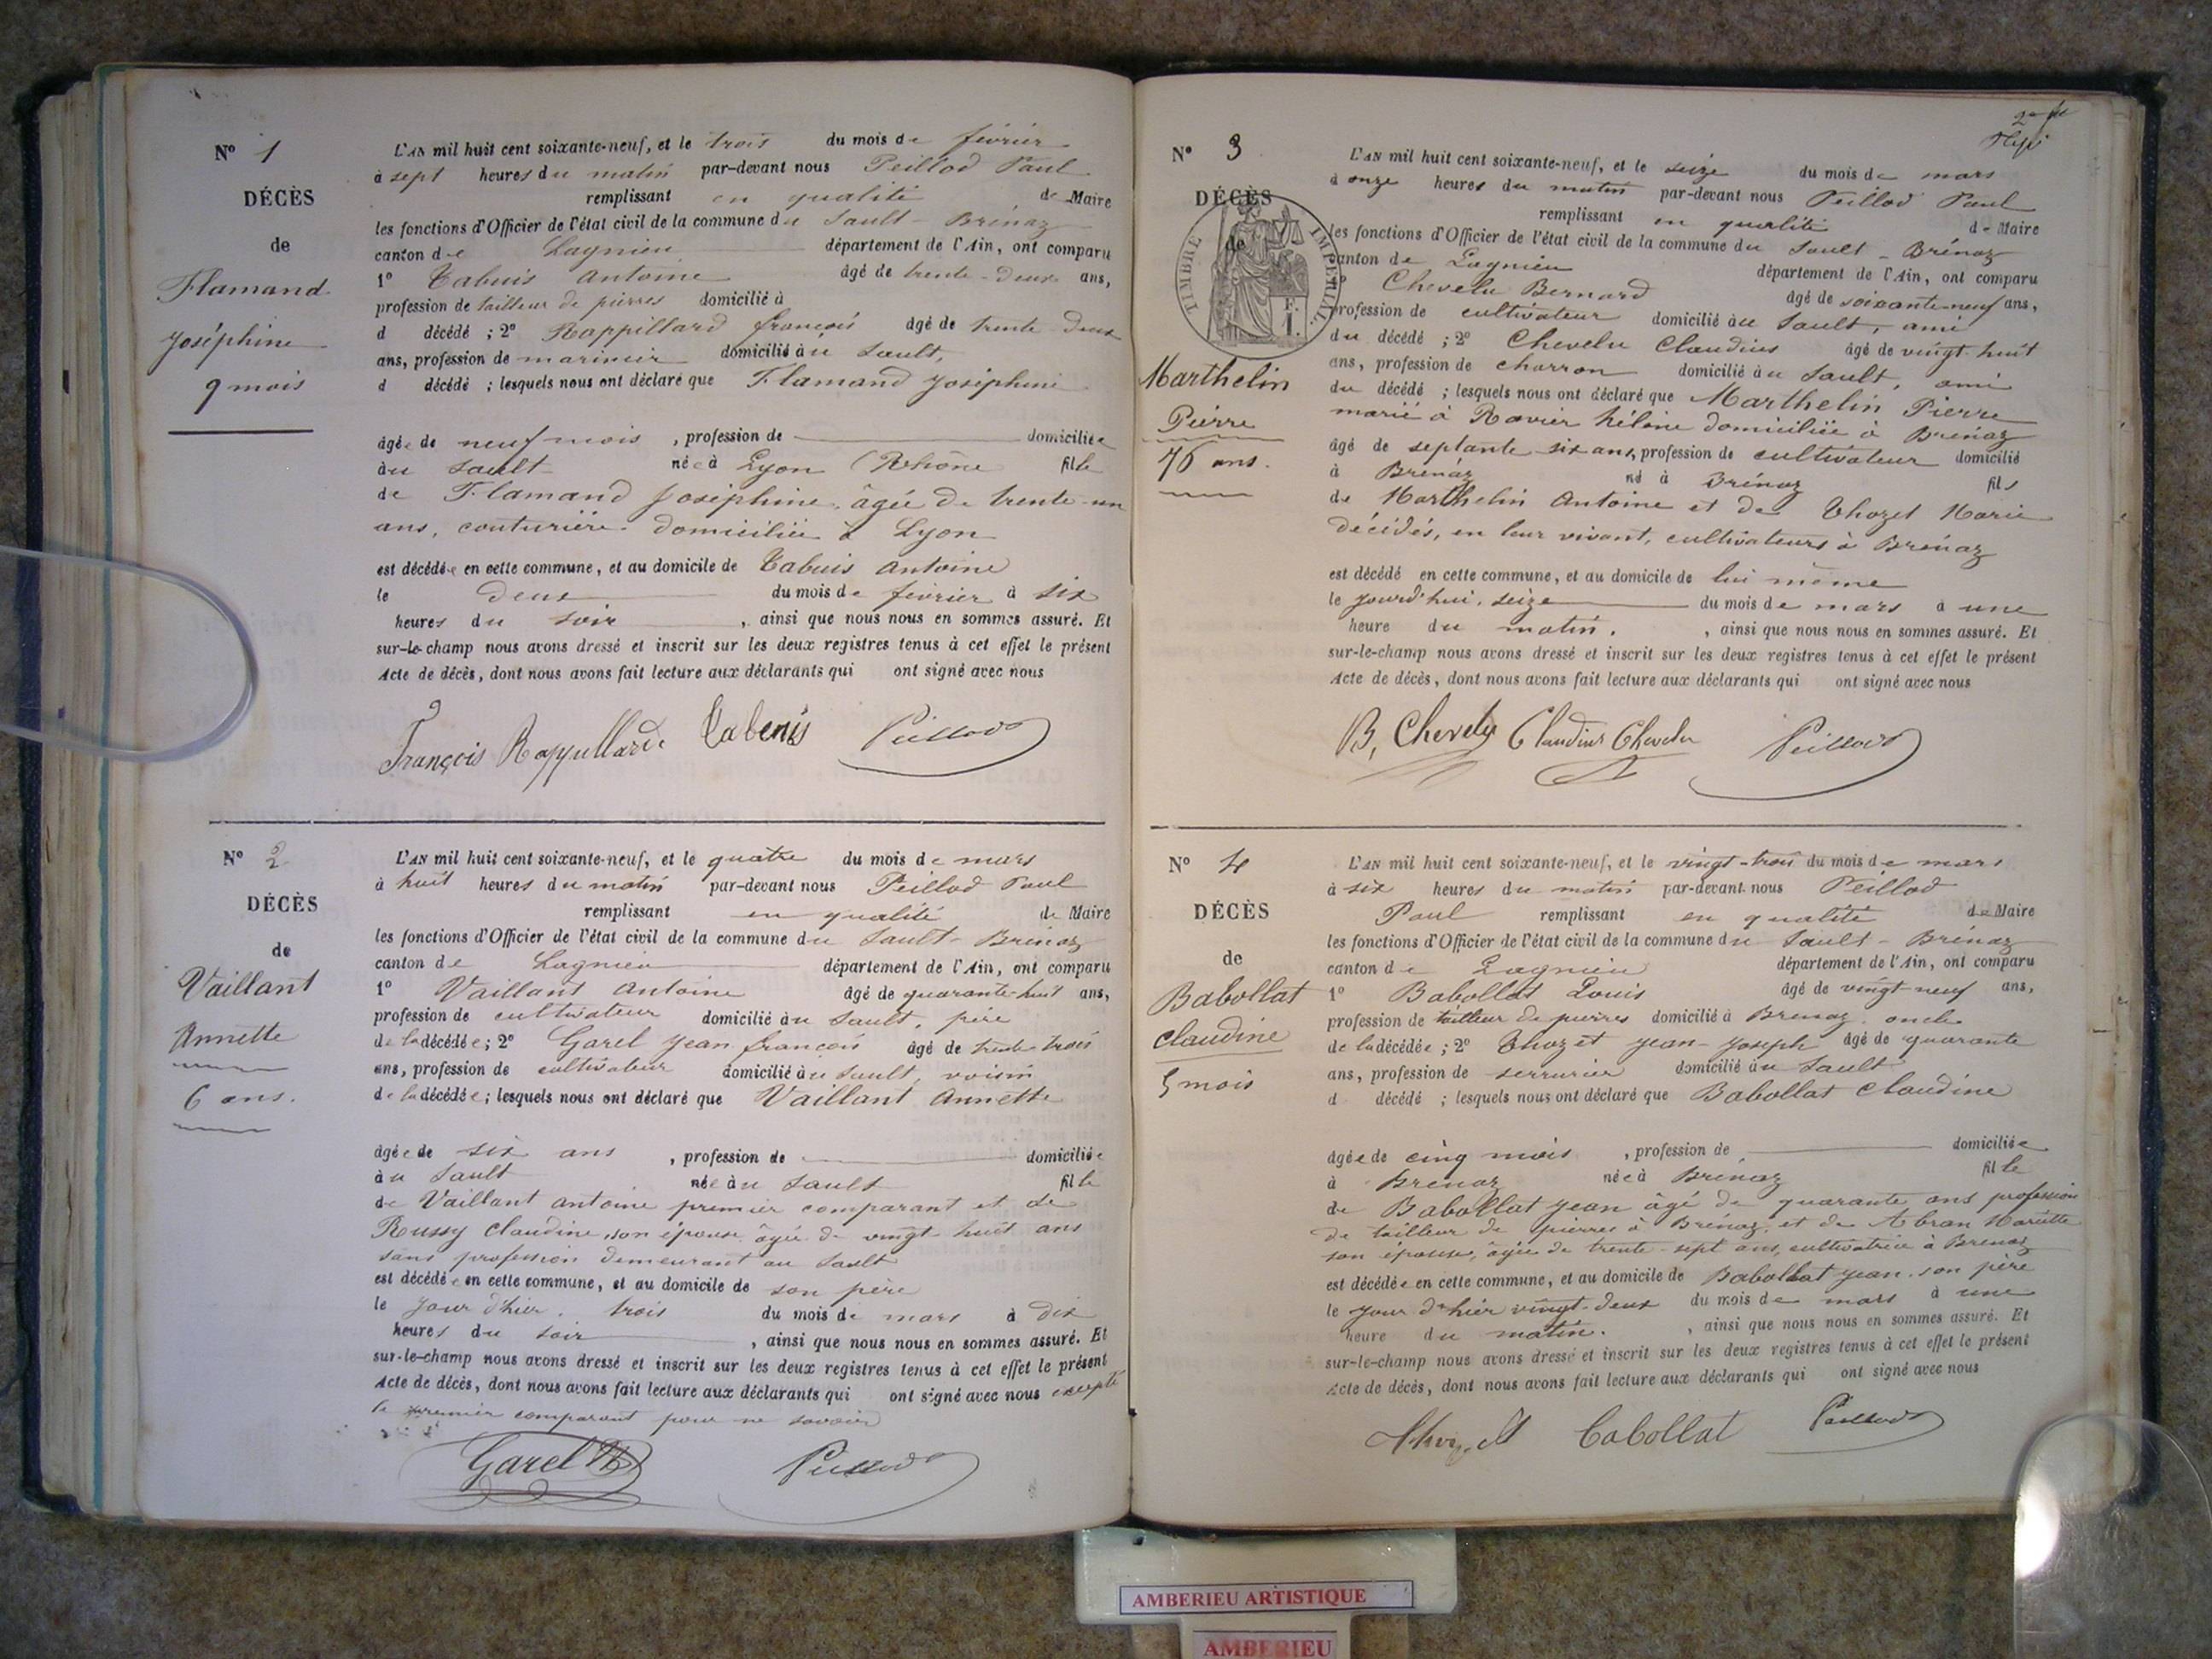 Nº 1
DÉCÈS
de
Flamand
Joséphine
9 mois
L'AN mil huit cent soixante-neuf, et le trois du mois de février
à sept heures du matin par-devant nous Peillod Paul
remplissant en qualité de Maire
les fonctions d'Officier de l'état civil de la commune du Sault-Brénaz
canton de Lagnieu département de l'Ain, ont comparu
1º Tabuis Antoine âgé de trente-deux ans,
profession de tailleur de pierres domicilié à
d décédé ; 2º Rappillard françois âgé de trente deux
ans, profession de marinier domicilié au Sault,
d décédé ; lesquels nous ont déclaré que Flamand Joséphine
âgée de neuf mois , profession de domiciliée
au Sault née à Lyon (Rhône fille
de Flamand Joséphine, âgée de trente-un
ans, couturière domiciliée à Lyon
est décédée en cette commune, et au domicile de Tabuis Antoine
le deux du mois de février à six
heures du soir , ainsi que nous nous en sommes assuré. Et
sur-le-champ nous avons dressé et inscrit sur les deux registres tenus à cet effet le présent
Acte de décès, dont nous avons fait lecture aux déclarants qui ont signé avec nous
François Rappullard Peillod
Nº 2
DÉCÈS
de
Vaillant
Annette
6 ans.
L'AN mil huit cent soixante-neuf, et le quatre du mois de mars
à huit heures du matin par-devant nous Peillod Paul
remplissant en qualité de Maire
les fonctions d'Officier de l'état civil de la commune du Sault-Brénaz
canton de Lagnieu département de l'Ain, ont comparu
1º Vaillant Antoine âgé de quarante-huit ans,
profession de cultivateur domicilié au Sault, père
de la décédée ; 2º Garel Jean françois âgé de trente-trois
ans, profession de cultivateur domicilié au Sault, voisin
de la décédée ; lesquels nous ont déclaré que Vaillant Annette
âgée de six ans , profession de domiciliée
au Sault née au Sault fille
de Vaillant Antoine premier comparant et de
Roussy Claudine, son épouse âgée de vingt huit ans
sans profession demeurant au Sault
est décédée en cette commune, et au domicile de son père
le jour d'hier, trois du mois de mars à dix
heures du soir , ainsi que nous nous en sommes assuré. Et
sur-le-champ nous avons dressé et inscrit sur les deux registres tenus à cet effet le présent
Acte de décès, dont nous avons fait lecture aux déclarants qui ont signé avec nous excepté
le premier comparant pour ne savoir
Garel Peillod
2e
Nº 3
DÉCÈS
de
TIMBRE IMPÉRIAL
F.
1.
Marthelin
Pierre
76 ans.
L'AN mil huit cent soixante-neuf, et le seize du mois de mars
à onze heures du matin par-devant nous Peillod Paul
remplissant en qualité de Maire
les fonctions d'Officier de l'état civil de la commune du Sault-Brénaz
canton de Lagnieu département de l'Ain, ont comparu
1º Chevelu Bernard âgé de soixante-neuf ans,
profession de cultivateur domicilié au Sault, ami
du décédé ; 2º Chevelu Claudius âgé de vingt-huit
ans, profession de charron domicilié au Sault, ami
du décédé ; lesquels nous ont déclaré que Marthelin Pierre
marié à Ravier hélène domiciliée à Brénaz
âgé de septante-six ans, profession de cultivateur domicilié
à Brénaz né à Brénaz fils
de Marthelin Antoine et de Thozet Marie
décédés, en leur vivant, cultivateurs à Brénaz
est décédé en cette commune, et au domicile de lui même
le jourd'hui, seize du mois de mars à une
heure du matin. , ainsi que nous nous en sommes assuré. Et
sur-le-champ nous avons dressé et inscrit sur les deux registres tenus à cet effet le présent
Acte de décès, dont nous avons fait lecture aux déclarants qui ont signé avec nous
B. Chevelu Claudius Chevelu Peillod
Nº 4
DÉCÈS
de
Babollat
Claudine
5 mois
L'AN mil huit cent soixante-neuf, et le vingt-trois du mois de mars
à six heures du matin par-devant nous Peillod
Paul remplissant en qualité de Maire
les fonctions d'Officier de l'état civil de la commune du Sault-Brénaz
canton de Lagnieu département de l'Ain, ont comparu
1º Babollat Louis âgé de vingt-neuf ans,
profession de tailleur de pierres domicilié à Brénaz, oncle
de la décédée ; 2º Thozet Jean-Joseph âgé de quarante
ans, profession de serrurier domicilié au Sault
d décédé ; lesquels nous ont déclaré que Babollat Claudine
âgée de cinq mois , profession de domiciliée
à Brénaz née à Brénaz fille
de Babollat Jean âgé de quarante ans profession
de tailleur de pierres à Brénaz, et de Abran Mariette
son épouse, âgée de trente-sept ans, cultivatrice à Brénaz
est décédée en cette commune, et au domicile de Babollat Jean, son père
le jour d'hier vingt-deux du mois de mars à une
heure du matin. , ainsi que nous nous en sommes assuré. Et
sur-le-champ nous avons dressé et inscrit sur les deux registres tenus à cet effet le présent
Acte de décès, dont nous avons fait lecture aux déclarants qui ont signé avec nous
Thozet Babollat Peillod
AMBERIEU ARTISTIQUE
AMBERIEU